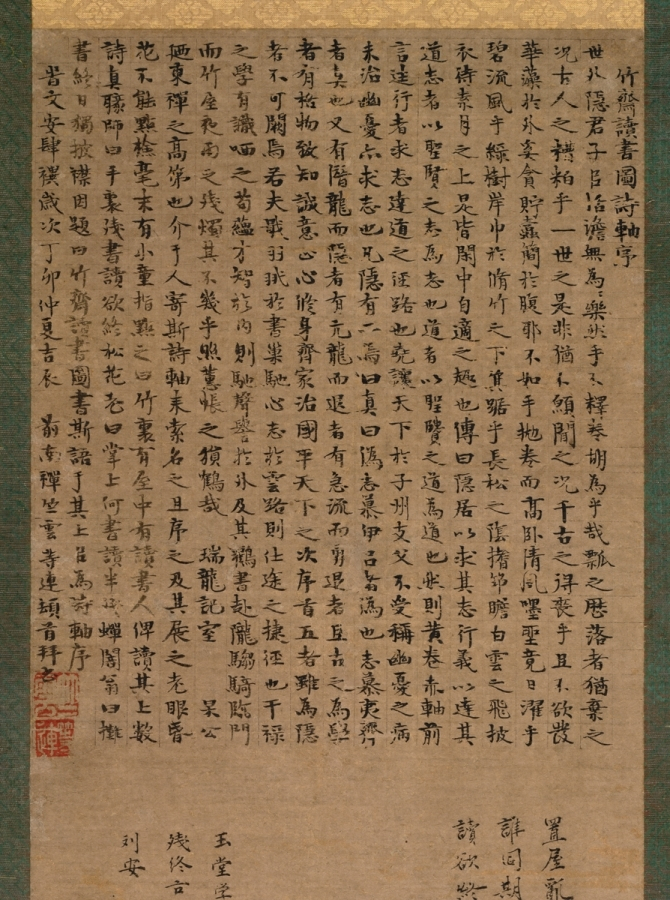 竹齋讀書圖詩軸序
世外隱君子自恬澹無為樂然手不釋卷胡為乎哉瓢之歷落者猶棄之
況古人之糟粕乎一世之是非猶不願聞之況千古之得喪乎且不欲發
華藻於外奚貪貯蠹簡於腹耶不如乎抛卷而高臥清風竟日濯乎
碧流風乎緑樹岸巾於脩竹之下箕踞乎長松之陰搘筇瞻白雲之飛披
衣待素月之上是皆閑中自適之趣也傳曰隱居以求其志行義以達其
道志者以聖賢之志為志也道者以聖賢之道為道也然則黄卷赤軸前
言往行者求志達道之徑路也堯讓天下於子州支父不受稱幽憂之病
未治幽憂亦求志也凡隱有二焉曰真曰偽志慕伊呂者偽也志慕夷齊
者真也又有潛龍而隱者有亢龍而退者有急流而勇退者且古之為學
者有格物致知誠意正心脩身齊家治國平天下之次序者五者雖為隱
者不可闕焉若夫戢羽於書巢馳心志於雲路則仕途之捷徑也干禄
之學有識哂之苟蘊才智於内則馳聲譽於外及其鶴書赴隴騶騎臨門
而竹屋夜雨之殘燭其不幾乎照蕙帳之猿鶴哉 瑞龍記室 杲公
廼東禪之高弟也介于人寄斯詩軸来索名之且序之及其展之老眼昏
花不能點檢毫末有小童指點之曰竹裏有屋中有讀書人俾讀其上數
詩真師曰手裏殘書讀欲終松花老曰掌上何書讀半殘蟬闇翁曰攤
書終日獨披襟因題曰竹齋讀書圖書斯語于其上以為詩軸序
旹文安肆禩歲次丁卯仲夏吉辰 前南禪竺雲等連頓首拜書
置屋亂
誰同期
讀欲終
玉堂學
殘終古
刘安